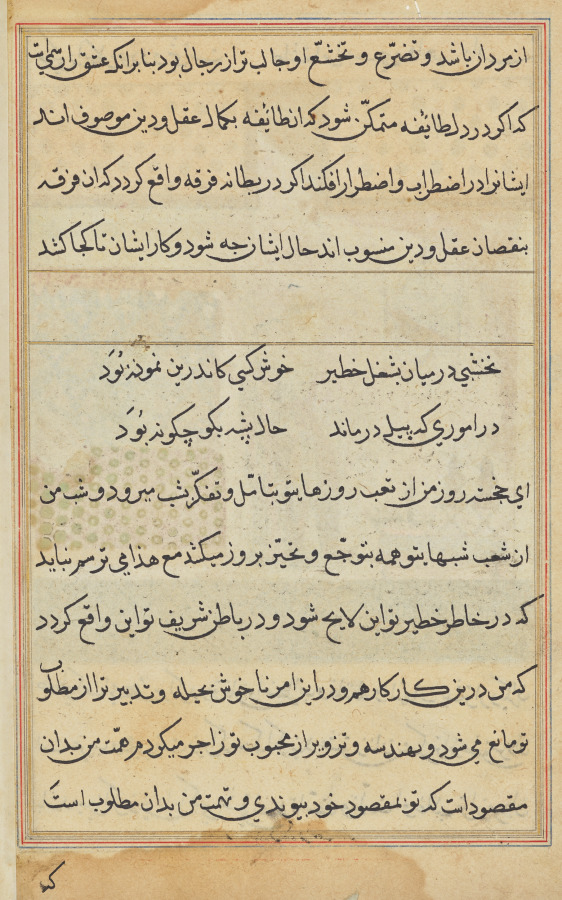 از مردان باشد و تضرّع و تخشّع او جالب تر از رجال بود بنابرانکه عشق را سمی است
که اکر در دل طائفه متمکّن شود که ان طائفه بکمال عقل و دین موصوف اند
ایشانرا در اضطراب و اضطرار افکند اکر در بطانه فرقه واقع کردد که ان فرقه
بنقصان عقل و دین منسوب اند حال ایشان جه شود و کار ایشان تا کجا کشد
نخشبی در میان بشغل خطیر خوش کسی کاندرین نمونه بُوَد
در اموری که پیل درماند حال پشه بکو چکونه بُوَد
ای خجسته روز من از تعب روزهایتو بتامّل و تفکّر بشب میرود و شب من
از شعب شبهایتو همه بتوجّع و تحیّر بروز میکشد مع هذا می ترسم نباید
که در خاطر خطیر تو این لایح شود و در باطن شریف تو این واقع کردد
که من درین کار کارهم و در این امر ناخوش بحیله و تدبیر ترا از مطلوب
تو مانع می شود و بهندسه و تزویر از محبوب تو زاجر میکردم همّت من بدان
مقصود است که تو بمقصود خود بپیوندی و نهمت من بدان مطلوب است
که